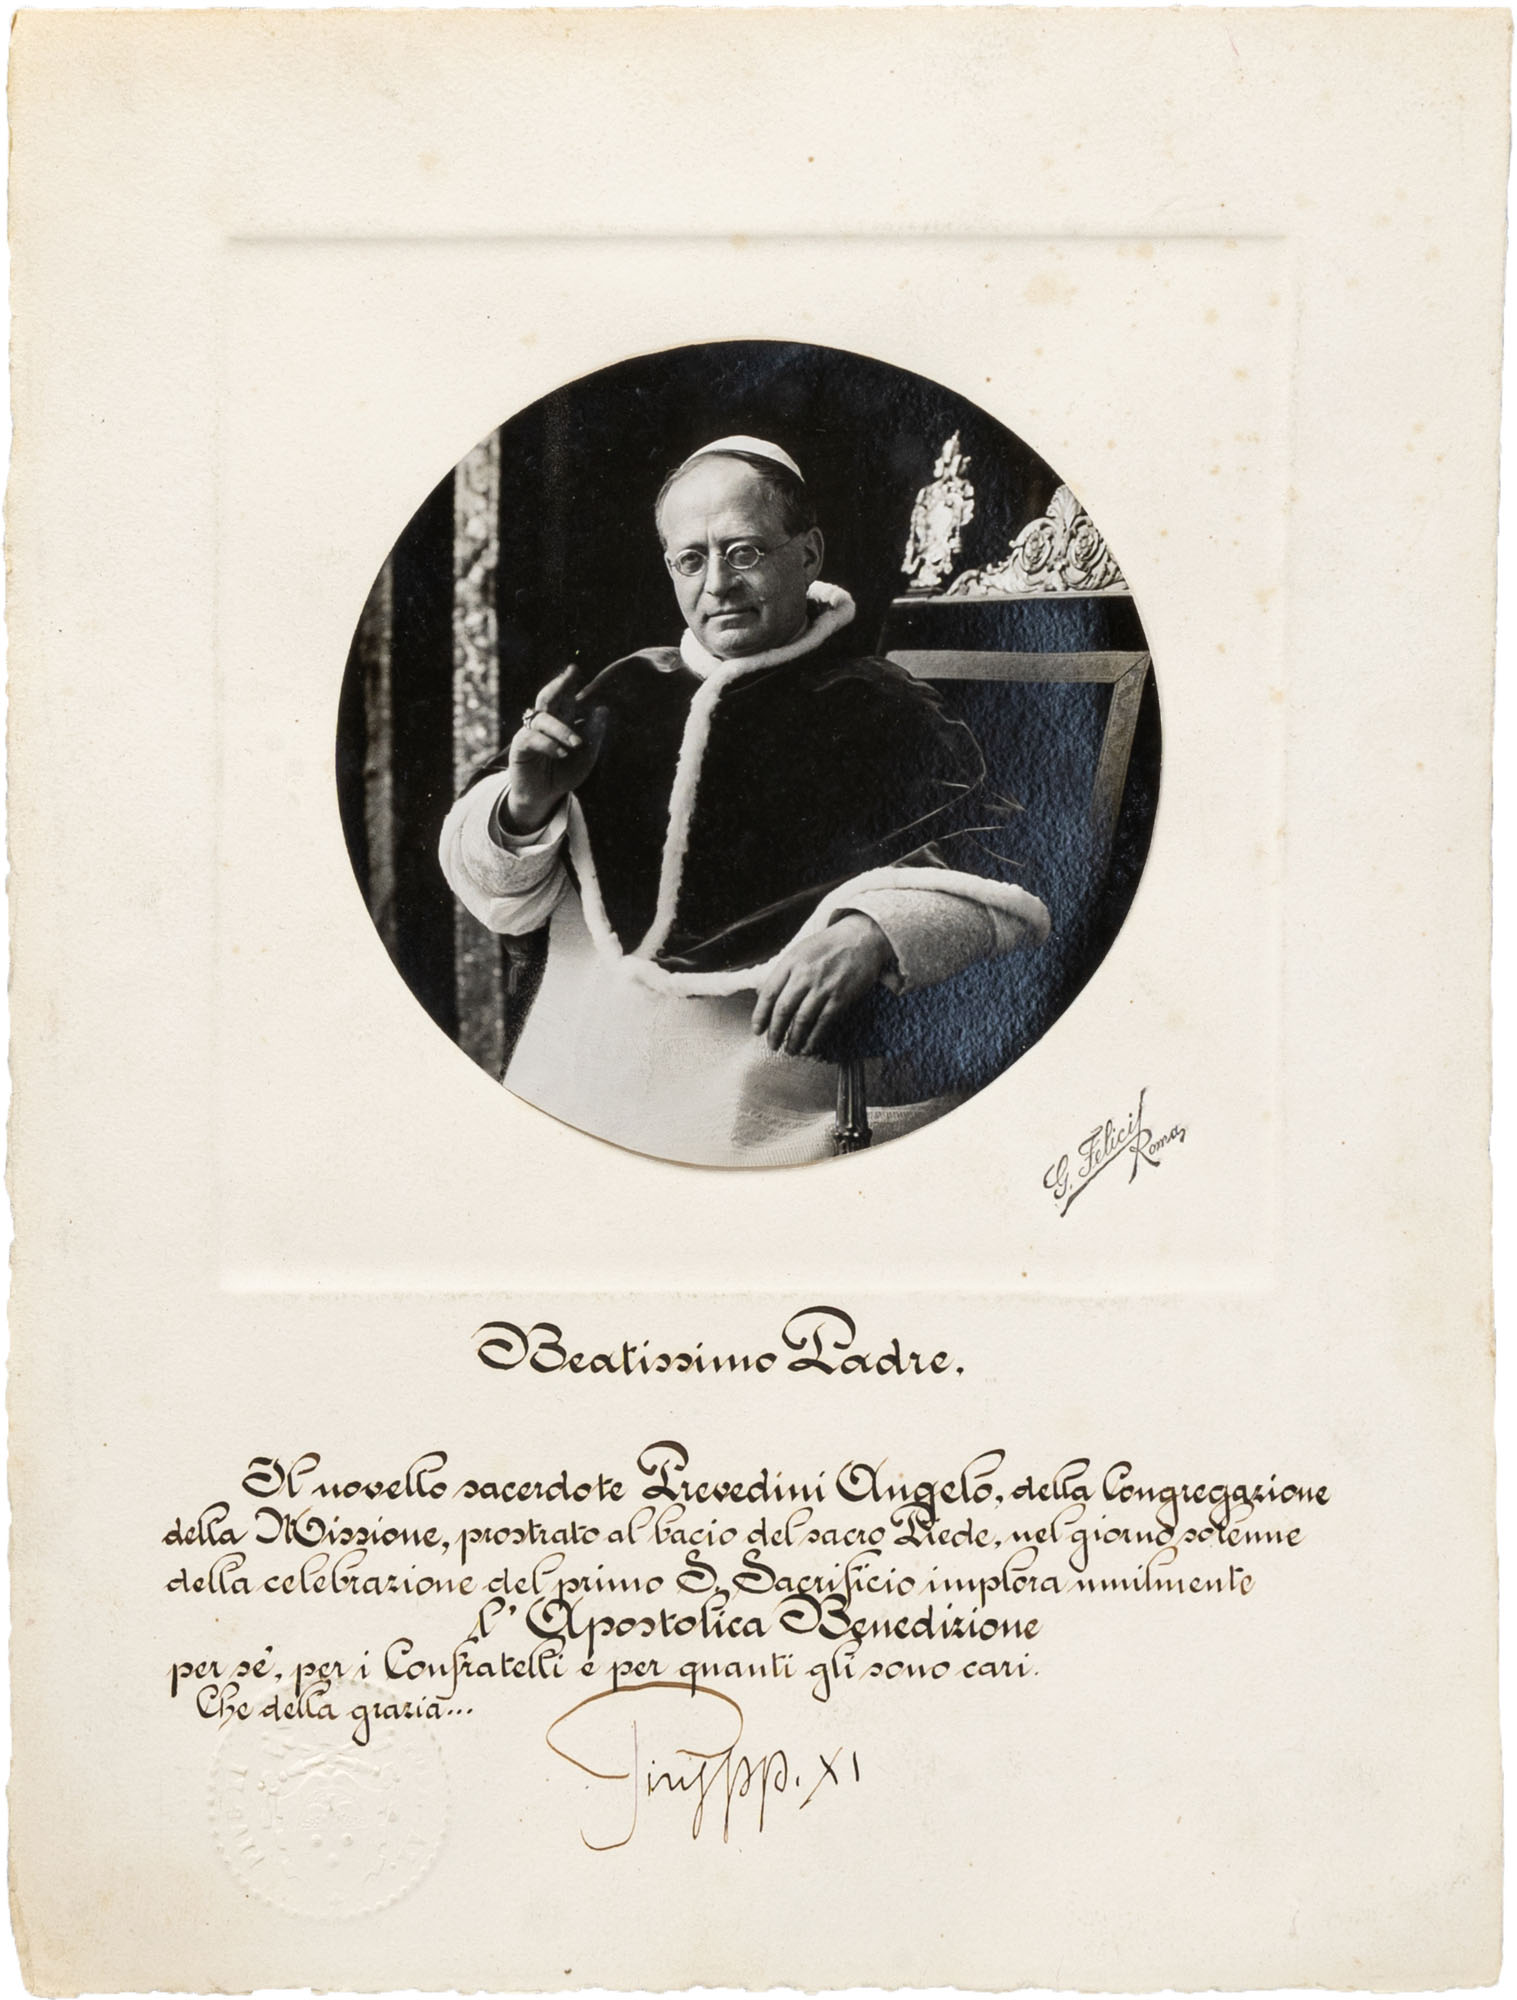 G. Felici
Roma
Beatissimo Padre,
Il novello sacerdote Prevedini Angelo, della Congregazione
della Missione, prostrato al bacio del sacro Piede, nel giorno solenne
della celebrazione del primo S. Sacrificio implora umilmente
l'Apostolica Benedizione
per sé, per i Confratelli e per quanti gli sono cari.
Che della grazia...
Pius pp. XI